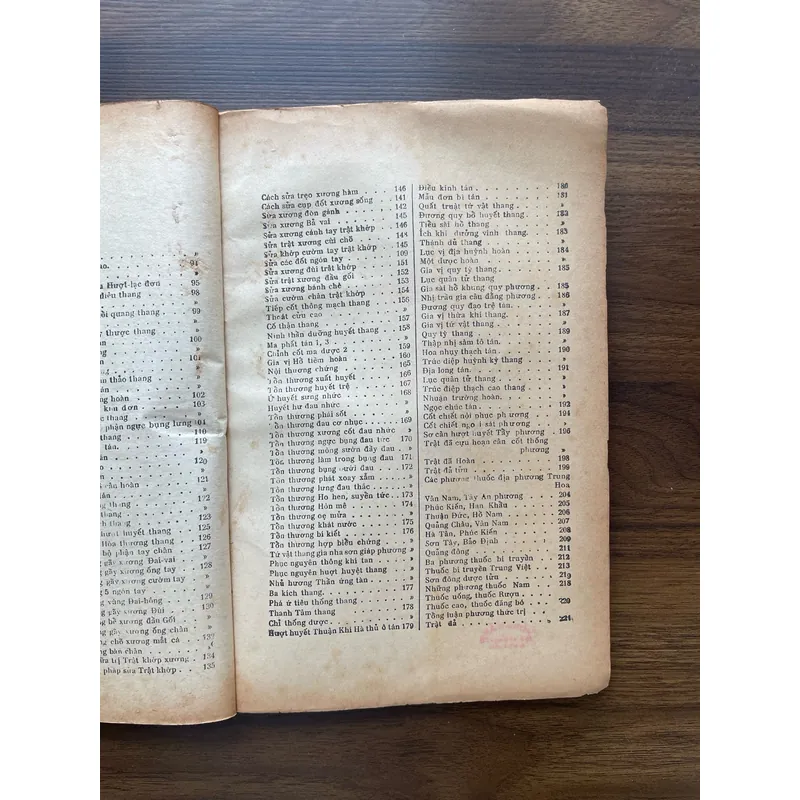 94
ao.
a Hượt-lạc đơn 95
điều thang 98
ồi quang thang 99
y thược thang
100
101
m thảo thang
ng hoàn 102
kim đơn 103
g phận ngực bụng lưng
thang 110
tán. 119
120
121
ầu hoàn
thang
ch thang 123
ư hượt huyết thang 125
Hòa thương thang 126
bộ phận tay chân 127
g gãy xương Đai-vai
ng gãy xương ống tay 128
g gãy xương cườm tay
5 ngón tay
ng vàng Đai-hông
gãy xương Đùi
bể xương đầu Gối
g gãy xương ống chân
g chỗ xương mắt cá
g bàn chân
ữa trị Trật khớp xương
pháp sửa Trật khớp 135
Cách sửa trẹo xương hàm 146
Cách sửa cụp đốt xương sống 141
Sửa xương đòn gánh 142
Sửa xương Bả vai 145
Sửa xương cánh tay trật khớp 146
Sửa trật xương cùi chỏ 148
Sửa khớp cườm tay trật khớp 109
Sửa các đốt ngón tay 151
Sửa xương đùi trật khớp 152
Sửa trật xương đầu gối 151
Sửa xương bánh chè 153
Sửa cườm chân trật khớp 154
Tiếp cốt thông mạch thang 156
Thoát cửu cao »
Cố thận thang 157
Ninh thần dưỡng huyết thang »
Ma phất tán 1, 3 158
Chỉnh cốt ma dược 2 159
Gia vị Hồ tiềm hoàn 160
Nội thương chứng 165
Tổn thương xuất huyết 166
Tổn thương huyết trệ 167
Ứ huyết sưng nhức 168
Huyết hư đau nhức »
Tổn thương phát sốt »
Tổn thương đau cơ nhục 169
Tổn thương xương cốt đau nhức »
Tổn thương ngực bụng đau tức 170
Tổn thương mông sườn đầy đau »
Tổn thương làm trong bụng đau 171
Tổn thương bụng dưới đau 172
Tổn thương phát xoay xẩm »
Tổn thương lưng đau thắc »
Tổn thương Ho hen, suyễn tức 173
Tổn thương Hôn mê 174
Tổn thương oẹ mửa »
Tổn thương khát nước 175
Tổn thương bí kiết 176
Tổn thương hợp biểu chứng »
Tứ vật thang gia nha sơn giáp phương »
Phục nguyên thông khí tán »
Phục nguyên hượt huyệt thang »
Nhũ hương Thần ứng tán »
Ba kích thang 177
Phá ứ tiêu thống thang »
Thanh Tâm thang 178
Chỉ thống dược »
Hượt huyết Thuận Khí Hà thủ ô tán 179
Điều kinh tán 180
Mẫu đơn bì tán 181
Quất truật tứ vật thang »
Đương quy hồ huyết thang 182
Tiền sài hồ thang »
Ích khí dưỡng vinh thang »
Thánh dũ thang »
Lục vị địa huỳnh hoàn 184
Một dược hoàn »
Gia vị quy tỳ thang 185
Lục quân tử thang »
Gia sài hồ khung quy phương 185
Nhị trần gia câu đằng phương 186
Đương quy đạo trệ tán »
Gia vị thừa khí thang 187
Gia vị tứ vật thang »
Quy tỳ thang »
Thập nhị sâm tô tán 189
Hoa nhụy thạch tán 190
Trúc diệp huỳnh kỳ thang »
Địa long tán 191
Lục quân tử thang »
Trúc điệp thạch cao thang »
Nhuận trường hoàn »
Ngọc chúc tán 192
Cốt chiết nối phục phương 194
Cốt chiết ngoại sát phương »
Sơ cân hượt huyết Tẩy phương 196
Trật đả cựu hoạn cân cốt thống
phương »
Trật đả Hoàn 198
Trật đả tửu 199
Các phương thuốc địa phương Trung
Hoa
Vân Nam, Tây An phương 204
Phúc Kiến, Hán Khẩu 205
Thuận Đức, Hồ Nam 206
Quảng Châu, Vân Nam 207
Hà Tân, Phúc Kiến 208
Sơn Tây, Bảo Định 209
Quảng đông 211
Ba phương thuốc bí truyền 212
Thuốc bí truyền Trung Việt 213
Sơn đông dược tửu 219
Những phương thuốc Nam 218
Thuốc uống, thuốc Rượu »
Thuốc cao, thuốc đăng bó 220
Tổng luận phương thức trị »
Trật đả 221